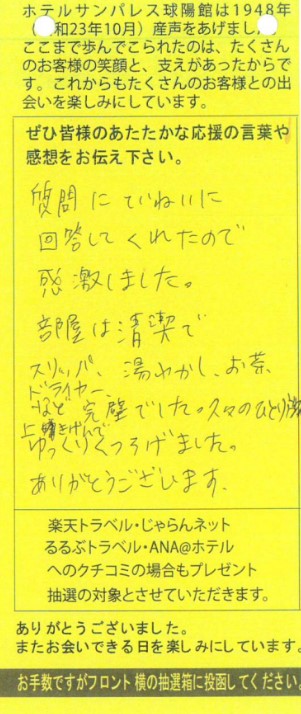 ホテルサンパレス球陽館は1948年
(和23年10月)産声をあげまし
ここまで歩んでこられたのは、たくさん
のお客様の笑顔と、支えがあったからで
す。これからもたくさんのお客様との出
会いを楽しみにしています。
ぜひ皆様のあたたかな応援の言葉や
感想をお伝え下さい。
質問にていねいに
回答してくれたので
感激しました。
部屋は清潔で
スリッパ、湯わかし、お茶、
ドライヤー、
など完璧でした。久々のひとり旅
上げきげんで
ゆっくりくつろげました。
ありがとうございます。
楽天トラベル・じゃらんネット
るるぶトラベル・ANA@ホテル
へのクチコミの場合もプレゼント
抽選の対象とさせていただきます。
ありがとうございました。
またお会いできる日を楽しみにしています。
お手数ですがフロント横の抽選箱に投函してください。